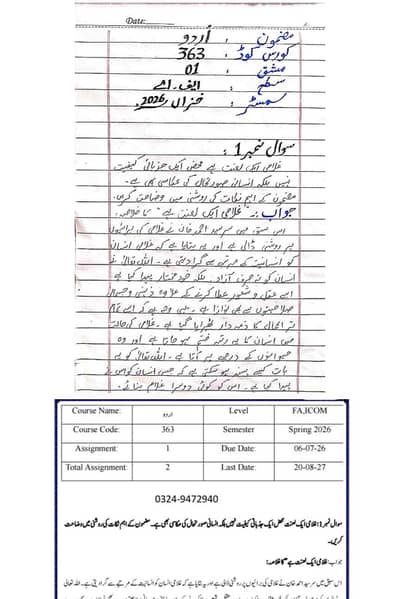 Date:
مضمون : اُردو
کورس کوڈ : 363
مشق : 01
سطح : ایف۔اے
سمسٹر : خزاں 2026ء
سوال نمبر 1:
غلامی ایک لعنت ہے محض ایک جذباتی کیفیت
نہیں بلکہ انسانی صورتحال کی عکاسی بھی ہے۔
مضمون کے اہم نکات کی روشنی میں وضاحت کریں۔
جواب:۔ "غلامی ایک لعنت ہے" کا خلاصہ:
اس سبق میں سرسید احمد خان نے غلامی کی برائیوں
پر روشنی ڈالی ہے اور یہ بتایا ہے کہ غلامی انسان
کو انسانیت کے مرتبے سے گرا دیتی ہے۔ اللہ تعالیٰ نے
انسان کو نہ صرف آزاد بلکہ خود مختار پیدا کیا ہے
اسے عقل و شعور عطا کرنے کے علاوہ ذہنی و جسمانی
صلاحیتوں سے بھی نوازا ہے۔ یہی وجہ ہے کہ اسے تمام
تر اعمال کا ذمہ دار ٹھہرایا گیا ہے۔ غلامی کی حالت
میں انسان کا یہ رتبہ ختم ہو جاتا ہے اور وہ
حیوانوں کے درجے پر آ جاتا ہے۔ اللہ تعالیٰ کو یہ
بات کیسے پسند ہو سکتی ہے کہ جس انسان کو اس نے
پیدا کیا ہے۔ اس کو کوئی دوسرا غلام بنائے۔
Course Name: اردو Level FA,ICOM
Course Code: 363 Semester Spring 2026
Assignment: 1 Due Date: 06-07-26
Total Assignment: 2 Last Date: 20-08-27
0324-9472940
سوال نمبر 1: غلامی ایک لعنت محض ایک جذباتی کیفیت نہیں بلکہ انسانی صورتحال کی عکاسی بھی ہے۔ مضمون کے اہم نکات کی روشنی میں وضاحت
کریں۔
جواب: غلامی ایک لعنت ہے" کا خلاصہ:
اس سبق میں سرسید احمد خان نے غلامی کی برائیوں پر روشنی ڈالی ہے اور یہ بتایا ہے کہ غلامی انسان کو انسانیت کے مرتبے سے گرا دیتی ہے۔ اللہ تعالیٰ